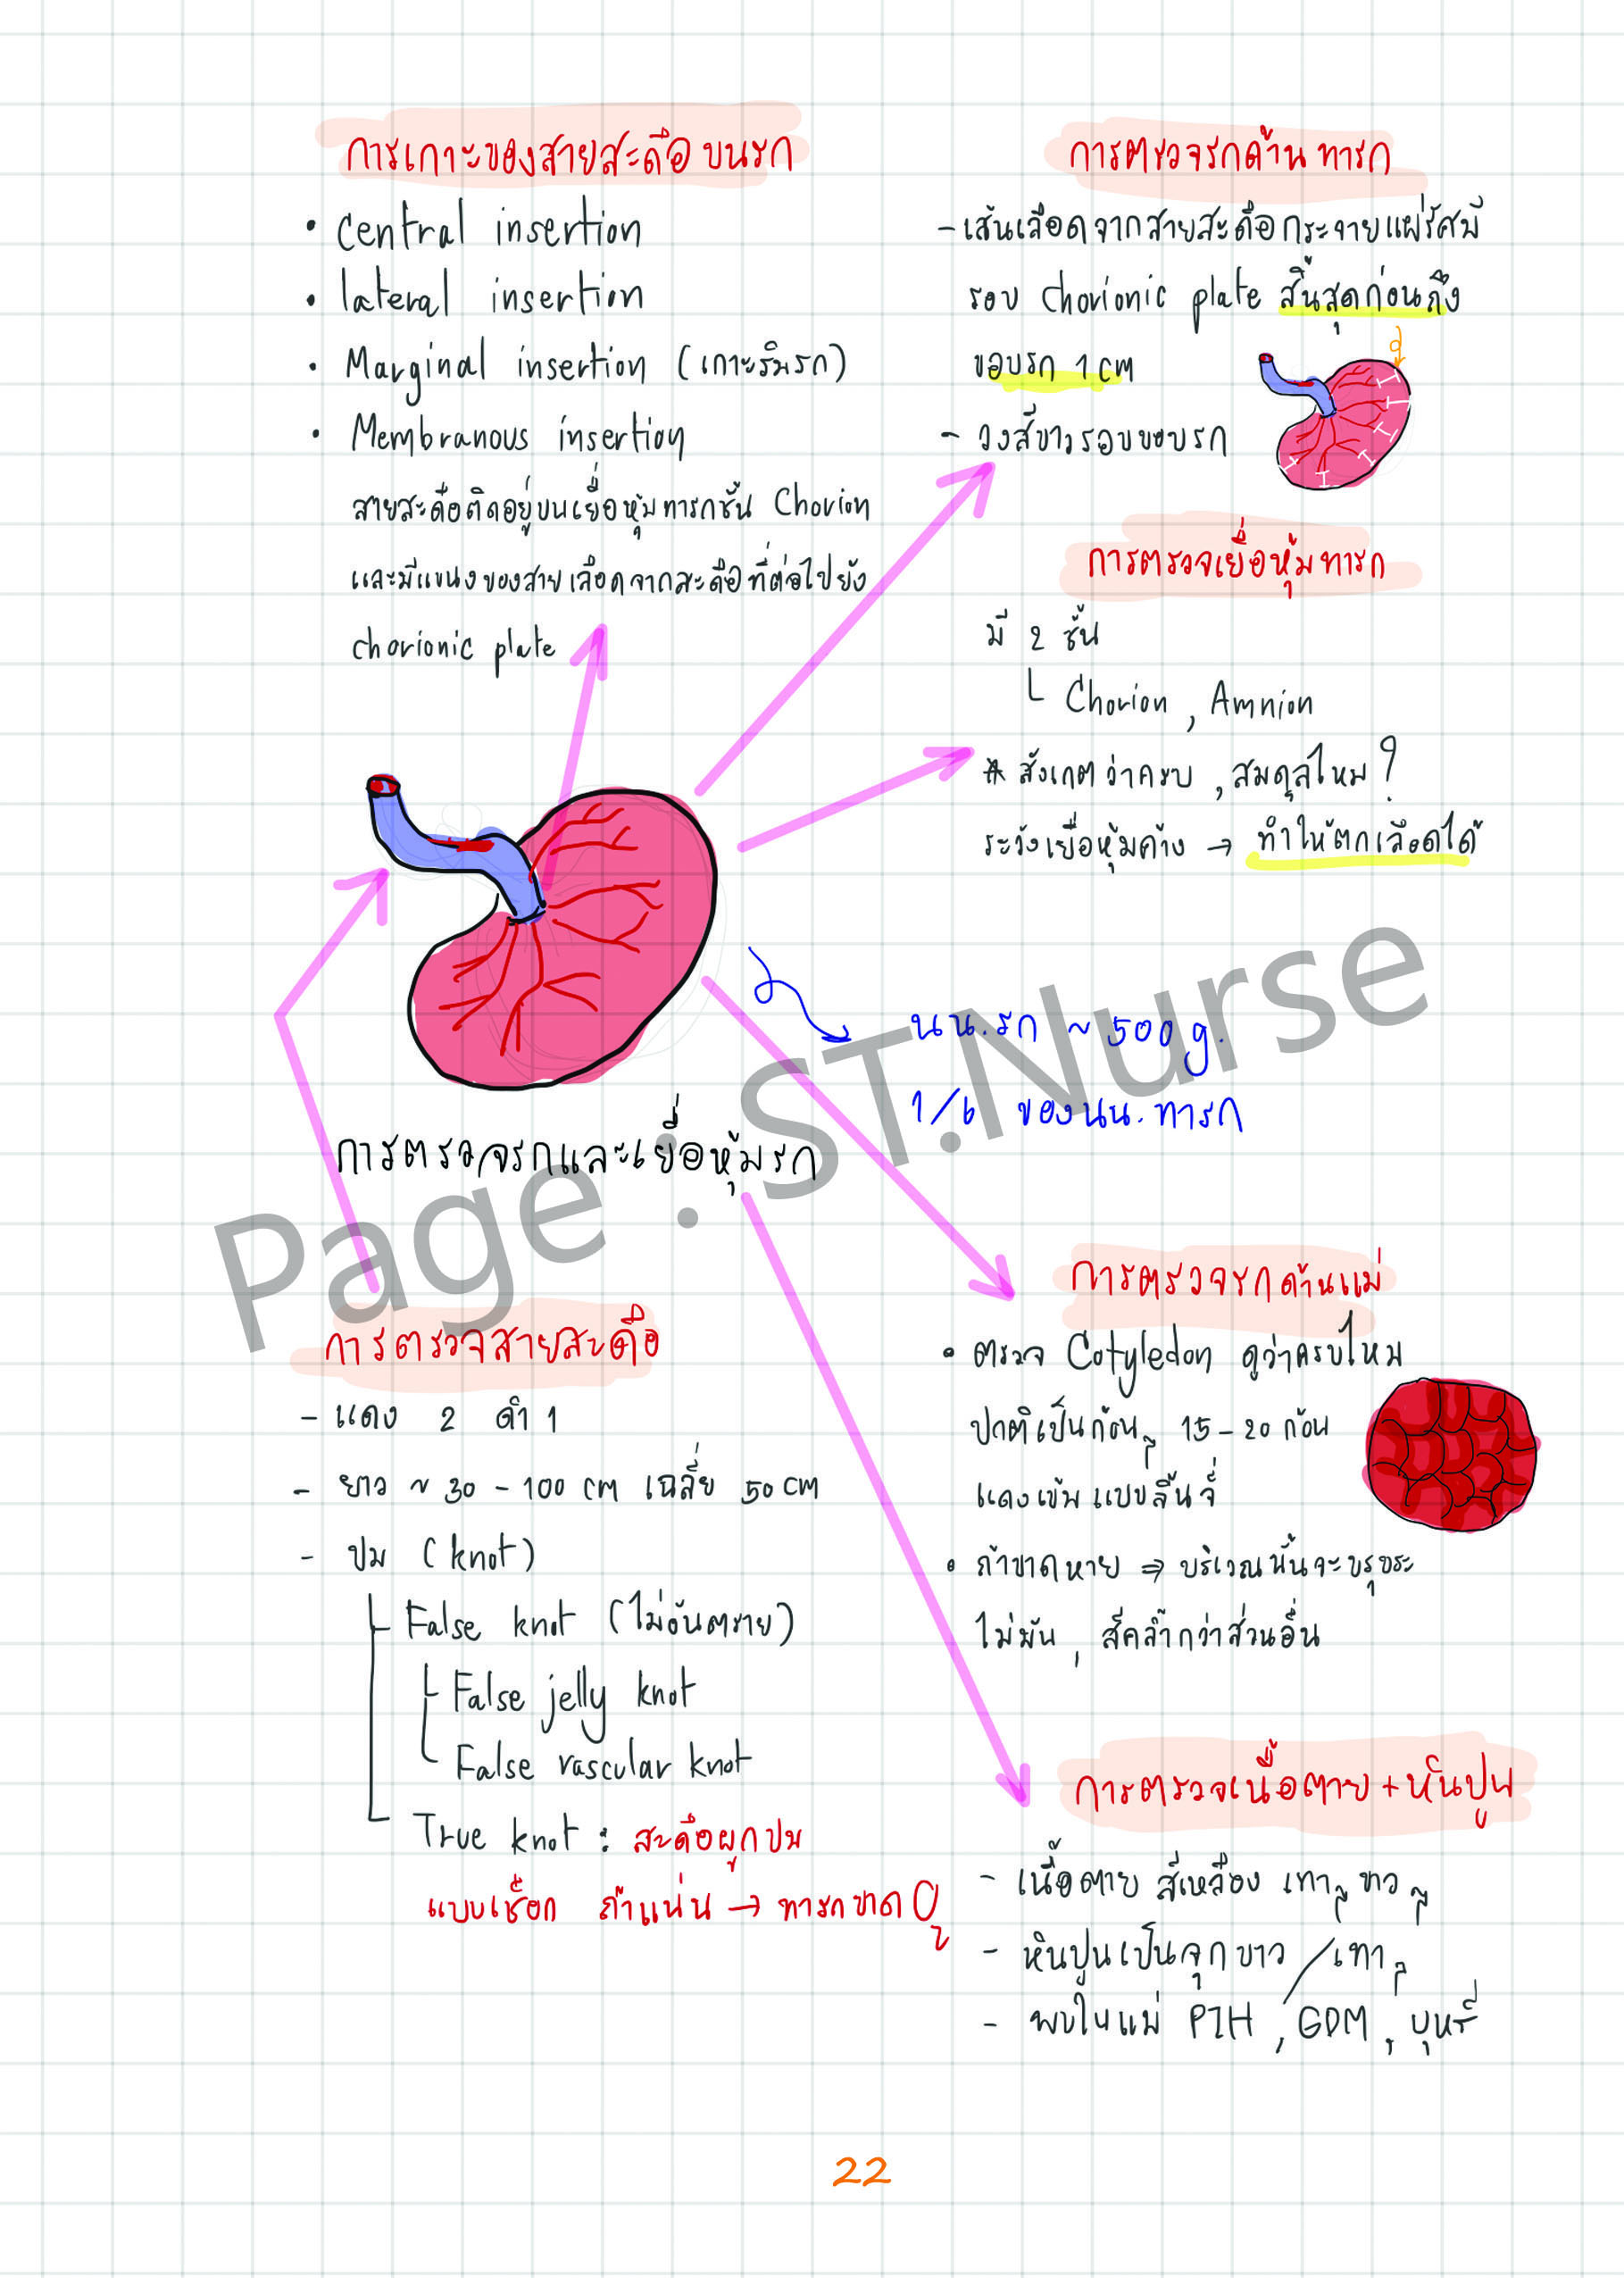 การเกาะของสายสะดือบนรก
• Central insertion
• lateral insertion
• Marginal insertion (เกาะริมรก)
• Membranous insertion
สายสะดือติดอยู่บนเยื่อหุ้มทารกชั้น Chorion
และมีแขนงของสายเลือดจากสะดือที่ต่อไปยัง
chorionic plate
การตรวจรกด้านทารก
- เส้นเลือดจากสายสะดือกระจายแผ่รัศมี
รอบ chorionic plate สิ้นสุดก่อนถึง
ขอบรก 1 cm
- วงสีขาวรอบขอบรก
การตรวจเยื่อหุ้มทารก
มี 2 ชั้น
Chorion , Amnion
* สังเกตว่าครบ , สมดุลไหม ?
ระวังเยื่อหุ้มค้าง → ทำให้ตกเลือดได้
นน.รก ~ 500 g.
1/6 ของนน.ทารก
การตรวจรกและเยื่อหุ้มรก
Page : ST.Nurse
การตรวจสายสะดือ
- แดง 2 ดำ 1
- ยาว ~ 30 - 100 cm เฉลี่ย 50 cm
- ปม (knot)
False knot (ไม่อันตราย)
False jelly knot
False vascular knot
True knot : สะดือผูกปม
แบบเชือก ถ้าแน่น → ทารกขาด O₂
การตรวจรกด้านแม่
• ตรวจ Cotyledon ดูว่าครบไหม
ปกติเป็นก้อนๆ 15 - 20 ก้อน
แดงเข้ม แบบลิ้นจี่
• ถ้าขาดหาย ⇒ บริเวณนั้นจะขรุขระ
ไม่มัน , สีคล้ำกว่าส่วนอื่น
การตรวจเนื้อตาย + หินปูน
- เนื้อตาย สีเหลือง เทาๆ ขาวๆ
- หินปูนเป็นจุกขาว / เทาๆ
- พบในแม่ PIH , GDM , บุหรี่
22